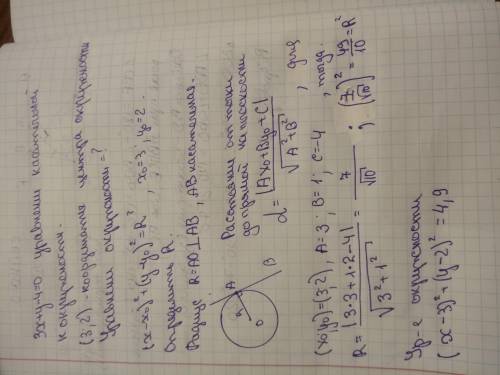 3x+y-4=0 уравнение касательной
к окружности.
(3;2) - координаты центра окружности
Уравнение окружности = ?
(x-x₀)²+(y-y₀)²=R², x₀=3; y₀=2.
Определить R.
Радиус R=AO⊥AB, AB касательная.
A
B
R
O
Расстояние от точки
до прямой на плоскости
d = |Ax₀+By₀+C| / √(A²+B²), для
(x₀;y₀)=(3;2), A=3; B=1; C=-4, тогда
R = |3·3+1·2-4| / √(3²+1²) = 7/√10; (7/√10)² = 49/10 = R²
Ур-е окружности
(x-3)²+(y-2)²=4,9